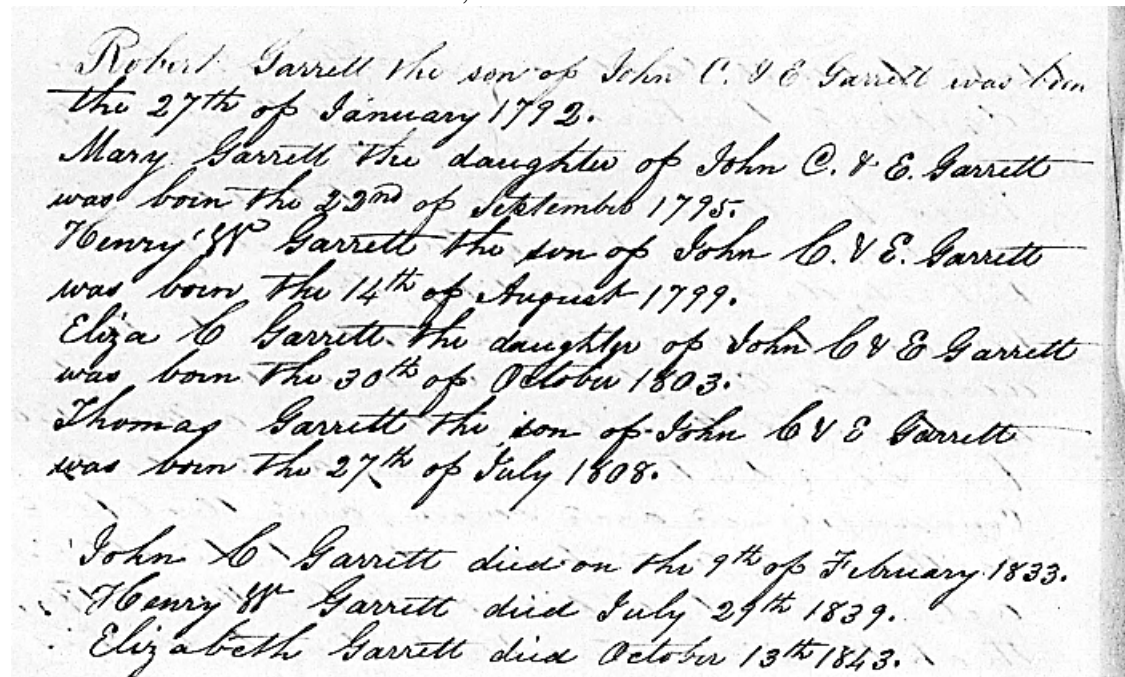 Robert Garrett the son of John C. & E Garrett was born
the 27th of January 1792.
Mary Garrett the daughter of John C. & E. Garrett
was born the 22nd of September 1795.
Henry W Garrett the son of John C. & E. Garrett
was born the 14th of August 1799.
Eliza C Garrett the daughter of John C & E Garrett
was born the 30th of October 1803.
Thomas Garrett the son of John C & E Garrett
was born the 27th of July 1808.
John C Garrett died on the 9th of February 1833.
Henry W Garrett died July 29th 1839.
Elizabeth Garrett died October 13th 1843.